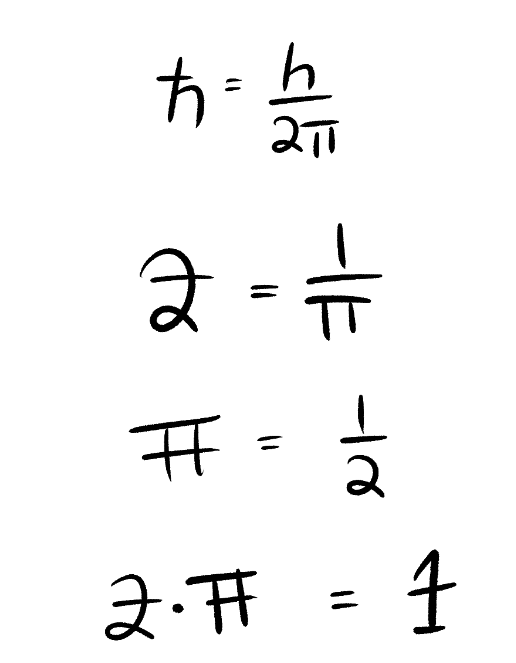 ħ = h/2π
2̵ = 1/π
π̵ = 1/2
2̵ · π̵ = 1̵